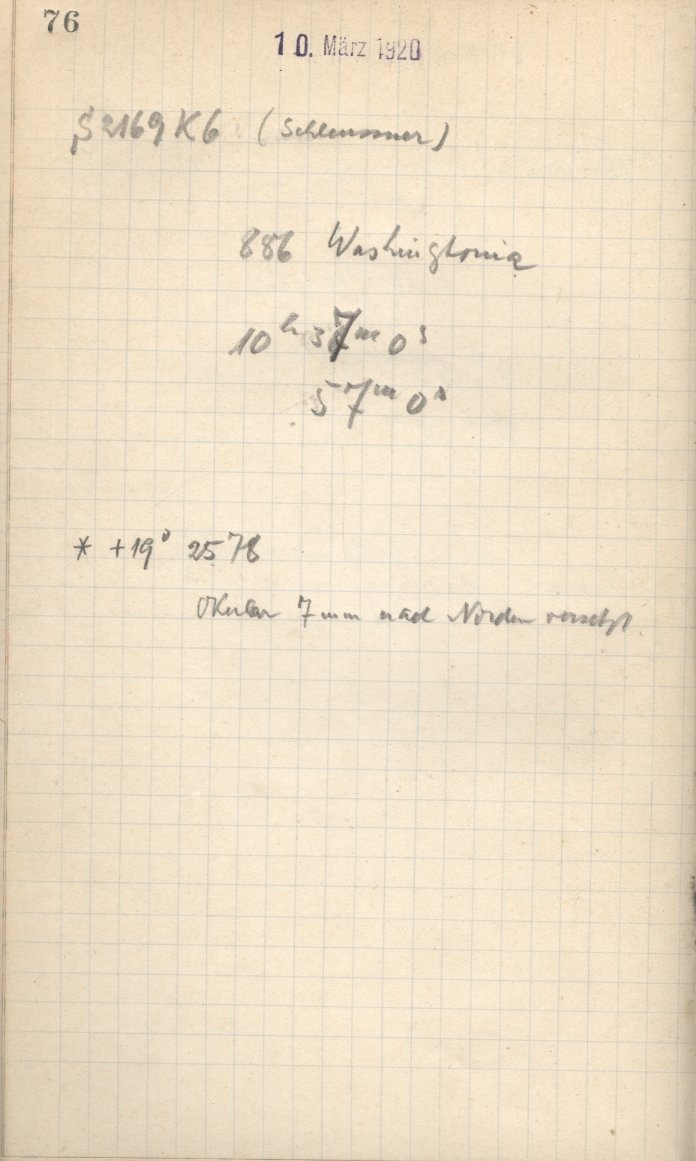 76
10. März 1920
S 2169 K6 (Schleussner)
886 Washingtonia
10h 37m 0s
57m 0s
* +19° 2578
Okular 7 mm nach Norden versetzt